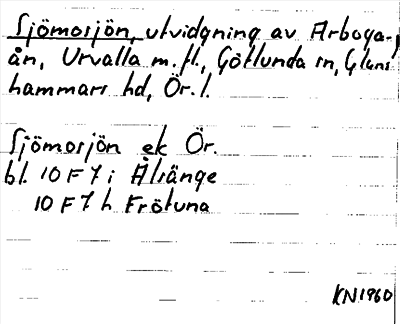 Sjömosjön, utvidgning av Arboga-
ån, Urvalla m.fl., Götlunda sn, Glans
hammars hd, Ör. l.
Sjömosjön ek Ör.
bl. 10 F 7 i Älsänge
10 F 7 h Frötuna
KN1960